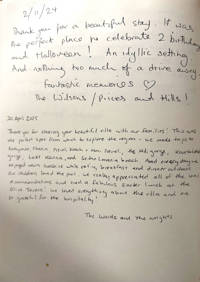 2/11/24
Thank you for a beautiful stay. It was
the perfect place to celebrate 2 birthdays
and Halloween! An idyllic setting
And nothing too much of a drive away.
Fantastic memories ♡
The Wilsons / Prices and Mills!
20 April 2025
Thank you for sharing your beautiful villa with our families! This was
the perfect spot from which to explore the region - we made trips to
the gorge,
beach. And everyone
enjoyed warm while eating breakfast and dinner outdoors!
Our children loved the pool. We really appreciated all of the
recommendations and had a fabulous Easter lunch at the
We loved everything about the villa and are
so grateful for the hospitality!
The Wards and the Wrights